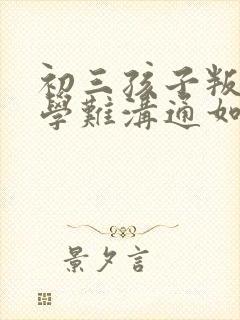 初三孩子叛
學難溝通如
景夕言